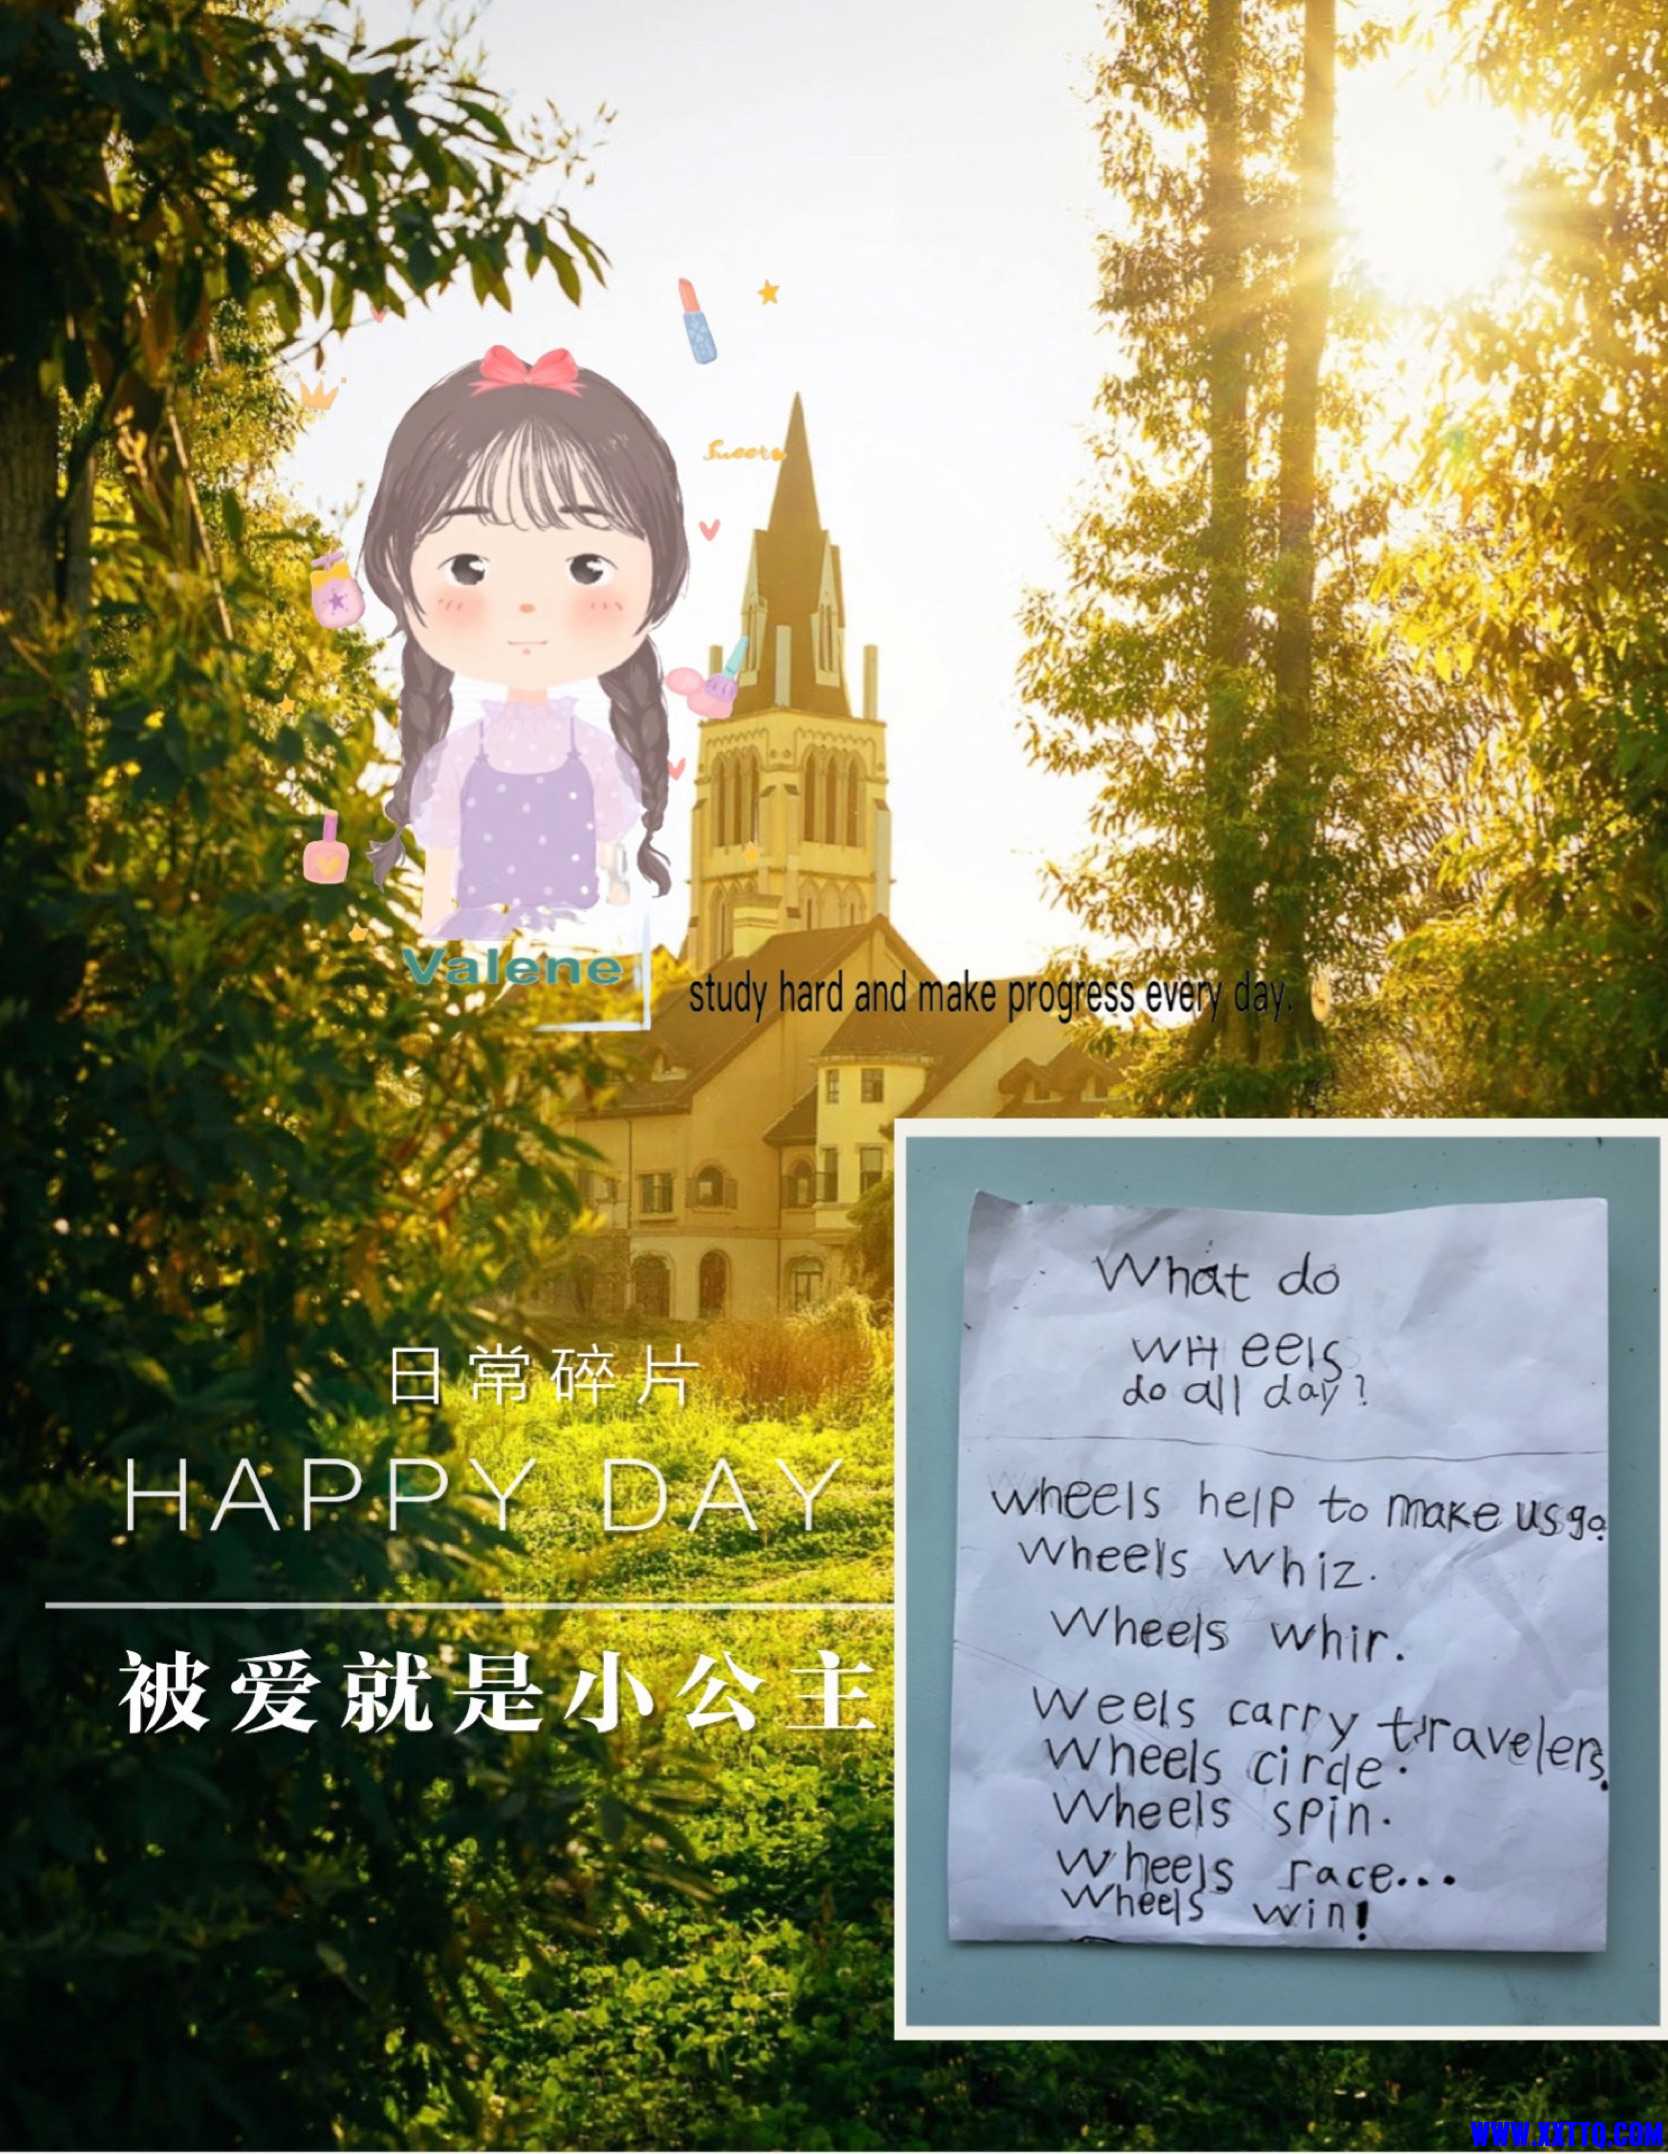 Sweet
Valene
study hard and make progress every day.
日常碎片
HAPPY DAY
被爱就是小公主
What do
WHeels
do all day?
Wheels help to make us go.
Wheels whiz.
Wheels whir.
Weels carry travelers.
Wheels circle.
Wheels spin.
Wheels race...
Wheels win!
WWW.XXTTQ.COM